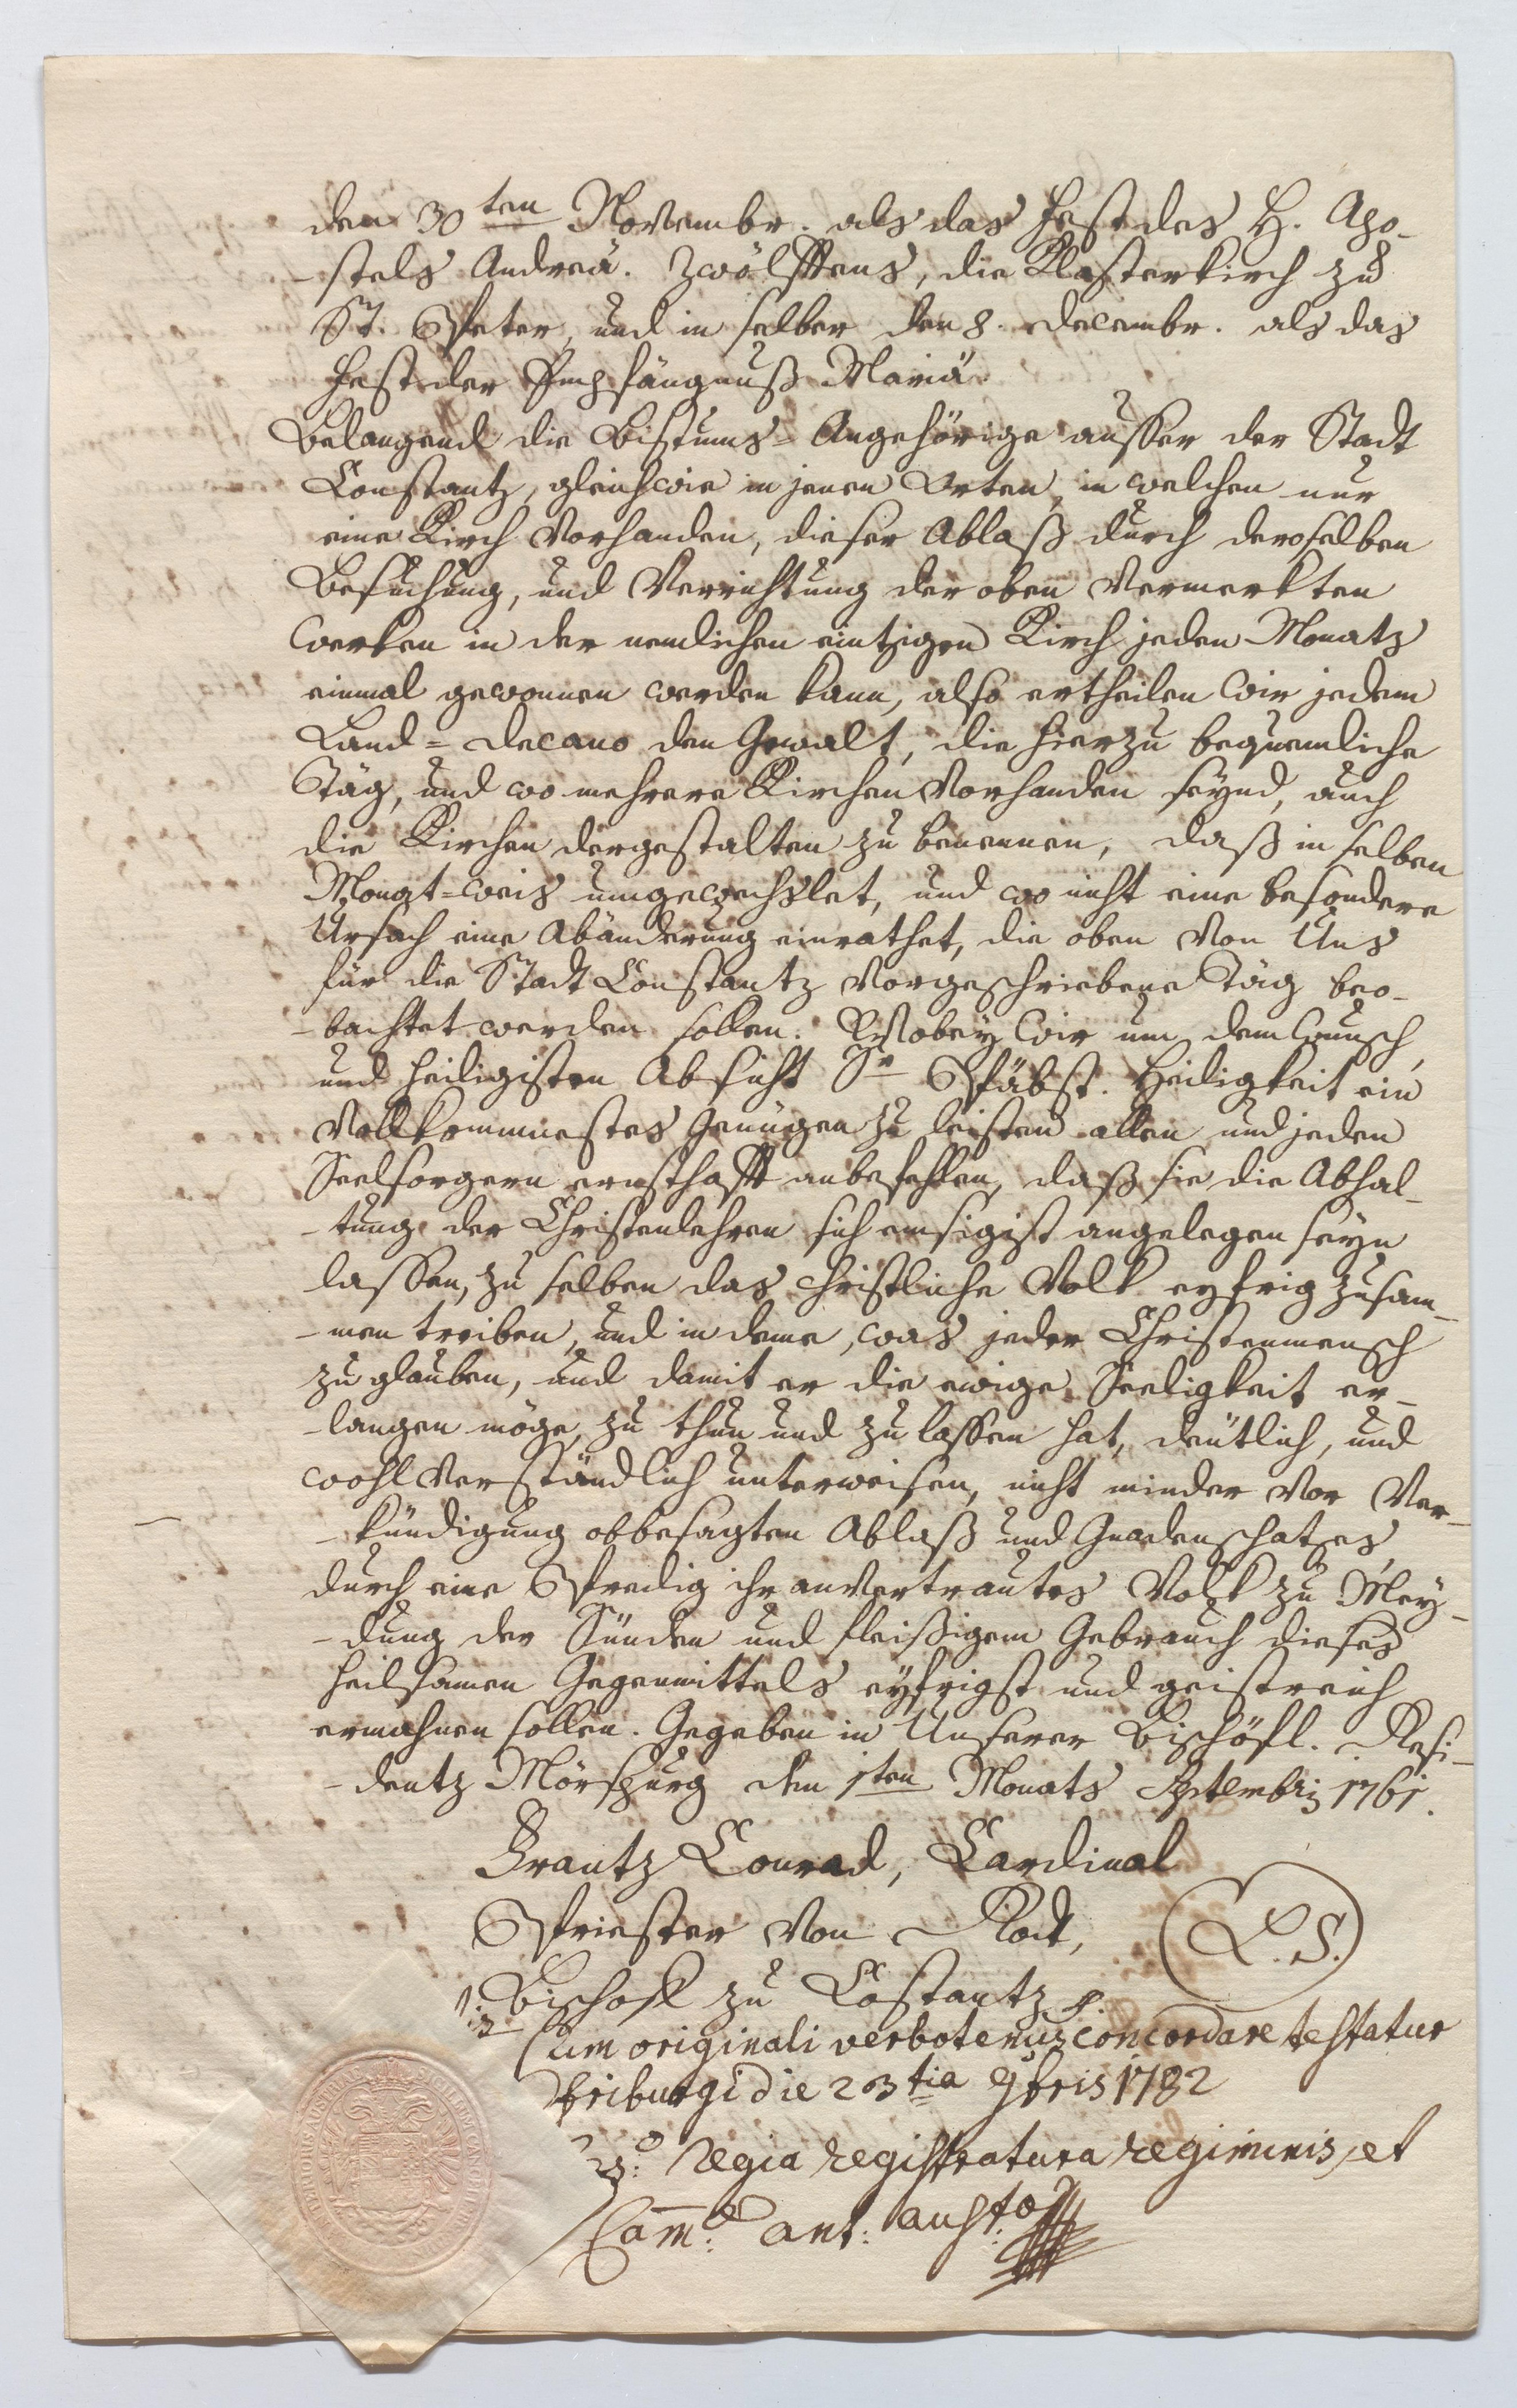 den 30ten Novembr. als das Fest des H. Apo-
-stels Andreä. Zwölfftens, die Klosterkirch zu
St. Peter, und in selber den 8. Decembr. als das
Fest der Empfängnuß Mariä.
Belangend die Bistums-Angehörige ausser der Stadt
Constantz, gleichwie in jenen Orten, in welchen nur
eine Kirch vorhanden, dieser Ablaß durch deroselben
Besuchung, und Verrichtung der oben vermerkten
Werken in der nemlichen eintzigen Kirch jeden Monats
einmal gewonnen werden kann, also ertheilen Wir jedem
Land=Decano den Gewalt, die hierzu bequemliche
Täg, und wo mehrere Kirchen vorhanden seynd, auch
die Kirchen dergestalten zu benennen, daß in selben
Monat=weis umgewechslet, und wo nicht eine besondere
Ursach eine Abänderung einrathet, die oben von Uns
für die Stadt Constantz vorgeschriebene Täg beo-
-bachtet werden sollen. Wobey Wir um dem Wunsch,
und heiligisten Absicht Sr Päbst. Heiligkeit ein
vollkommnestes Genügen zu leisten allen und jeden
Seelsorgern ernsthafft anbefehlen, daß sie die Abhal-
-tung der Christenlehren sich emsigist angelegen seyn
lassen, zu selben das christliche Volk eyfrig zusam-
-men treiben, und in deme, was jeder Christenmensch
zu glauben, und damit er die ewige Seeligkeit er-
-langen möge, zu thun und zu lassen hat, deutlich, und
wohlverständlich unterweisen, nicht minder vor Ver-
-kündigung obbesagten Ablaß und Gnadenschatzes
durch eine Predig ihr anvertrautes Volk zu Mey-
-dung der Sünden und fleißigem Gebrauch dieses
heilsamen Gegenmittels eyfrigst und geistreich
ermahnen sollen. Gegeben in Unserer Bischöfl. Resi-
-dentz Mörspurg den 1ten Monats Septembris 1761.
Frantz Conrad, Cardinal
Priester von Rodt,
(L.S.)
Bischoff zu Costantz
Cum originali verbotenus concordare testatur
friburgi die 23tia 9bris 1782
Regia registratura regiminis, et
Cam: ant: aust: